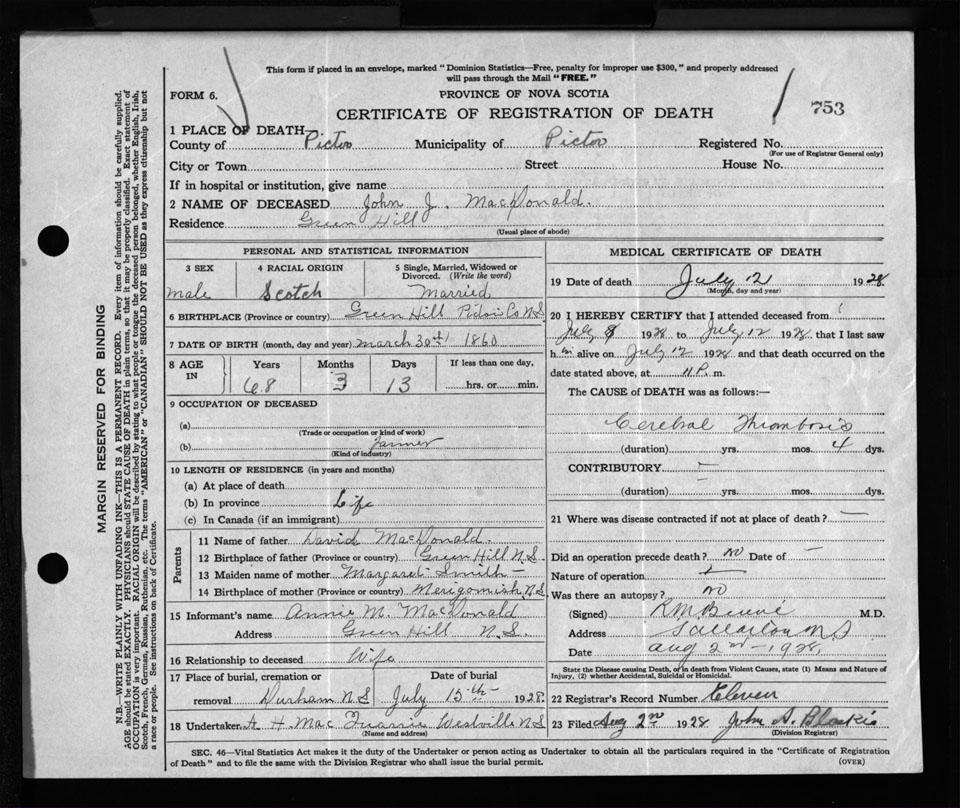 This form if placed in an envelope, marked "Dominion Statistics—Free, penalty for improper use $300," and properly addressed
will pass through the Mail "FREE."
FORM 6.
PROVINCE OF NOVA SCOTIA
753
CERTIFICATE OF REGISTRATION OF DEATH
1 PLACE OF DEATH—
County of Pictou Municipality of Pictou Registered No.
(For use of Registrar General only)
City or Town Street House No.
If in hospital or institution, give name
2 NAME OF DECEASED John J. MacDonald.
Residence Green Hill
(Usual place of abode)
PERSONAL AND STATISTICAL INFORMATION
3 SEX 4 RACIAL ORIGIN 5 Single, Married, Widowed or
Divorced. (Write the word)
male Scotch Married
6 BIRTHPLACE (Province or country) Green Hill Pictou Co N.S.
7 DATE OF BIRTH (month, day and year) March 30th 1860
8 AGE IN Years Months Days If less than one day,
68 3 13 hrs. or min.
9 OCCUPATION OF DECEASED
(a)
(Trade or occupation or kind of work)
(b) Farmer
(Kind of industry)
10 LENGTH OF RESIDENCE (in years and months)
(a) At place of death
(b) In province Life
(c) In Canada (if an immigrant)
Parents
11 Name of father David MacDonald.
12 Birthplace of father (Province or country) Green Hill N.S.
13 Maiden name of mother Margaret Smith —
14 Birthplace of mother (Province or country) Merigomish N.S.
15 Informant's name Annie M. MacDonald
Address Green Hill N.S.
16 Relationship to deceased Wife
17 Place of burial, cremation or Date of burial
removal Durham N.S July 15th 1928.
18 Undertaker A H. Mac Westville N.S
(Name and address)
MEDICAL CERTIFICATE OF DEATH
19 Date of death July 12 1928.
(Month, day and year)
20 I HEREBY CERTIFY that I attended deceased from
July 8 1928 to July 12 1928 that I last saw
him alive on July 12 1928 and that death occurred on the
date stated above, at 11 P. m.
The CAUSE of DEATH was as follows:—
Cerebral Thrombosis
(duration) yrs. mos. 4 dys.
CONTRIBUTORY —
(duration) yrs. mos. dys.
21 Where was disease contracted if not at place of death? —
Did an operation precede death? no Date of —
Nature of operation
Was there an autopsy? no
(Signed) M.D.
Address Stellarton N S
Date Aug 2nd — 1928.
State the Disease causing Death, or in death from Violent Causes, state (1) Means and Nature of
Injury, (2) whether Accidental, Suicidal or Homicidal.
22 Registrar's Record Number Eleven
23 Filed Aug 2nd 1928 John A. Blaikie
(Division Registrar)
SEC. 46—Vital Statistics Act makes it the duty of the Undertaker or person acting as Undertaker to obtain all the particulars required in the "Certificate of Registration
of Death" and to file the same with the Division Registrar who shall issue the burial permit.
(OVER)
MARGIN RESERVED FOR BINDING
N.B.—WRITE PLAINLY WITH UNFADING INK—THIS IS A PERMANENT RECORD. Every item of information should be carefully supplied.
AGE should be stated EXACTLY. PHYSICIANS should STATE CAUSE OF DEATH in plain terms, so that it may be properly classified. Exact statement of
OCCUPATION is very important. RACIAL ORIGIN will be described by stating to what people or tongue the deceased person belonged, whether English, Irish,
Scotch, French, German, Russian, Ruthenian, etc. The terms "AMERICAN" or "CANADIAN" SHOULD NOT BE USED as they express citizenship but not
a race or people. See instructions on back of Certificate.